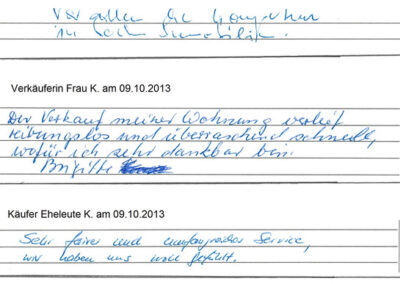 Vor allem die Kompetenz
in Sachen Immobilien.
Verkäuferin Frau K. am 09.10.2013
Der Verkauf meiner Wohnung verlief
reibungslos und überraschend schnell,
wofür ich sehr dankbar bin.
Brigitte
Käufer Eheleute K. am 09.10.2013
Sehr fairer und umfangreicher Service,
wir haben uns wohl gefühlt.